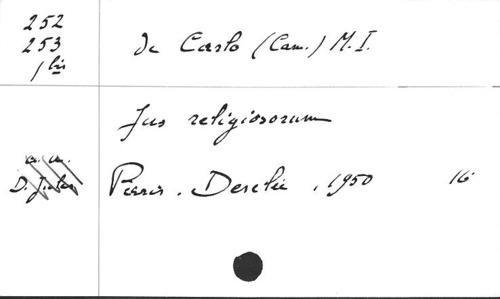 252
253
1 bis
de Carlo (Cam.) M.I.
Jus religiosorum
Paris. Desclée, 1950 16